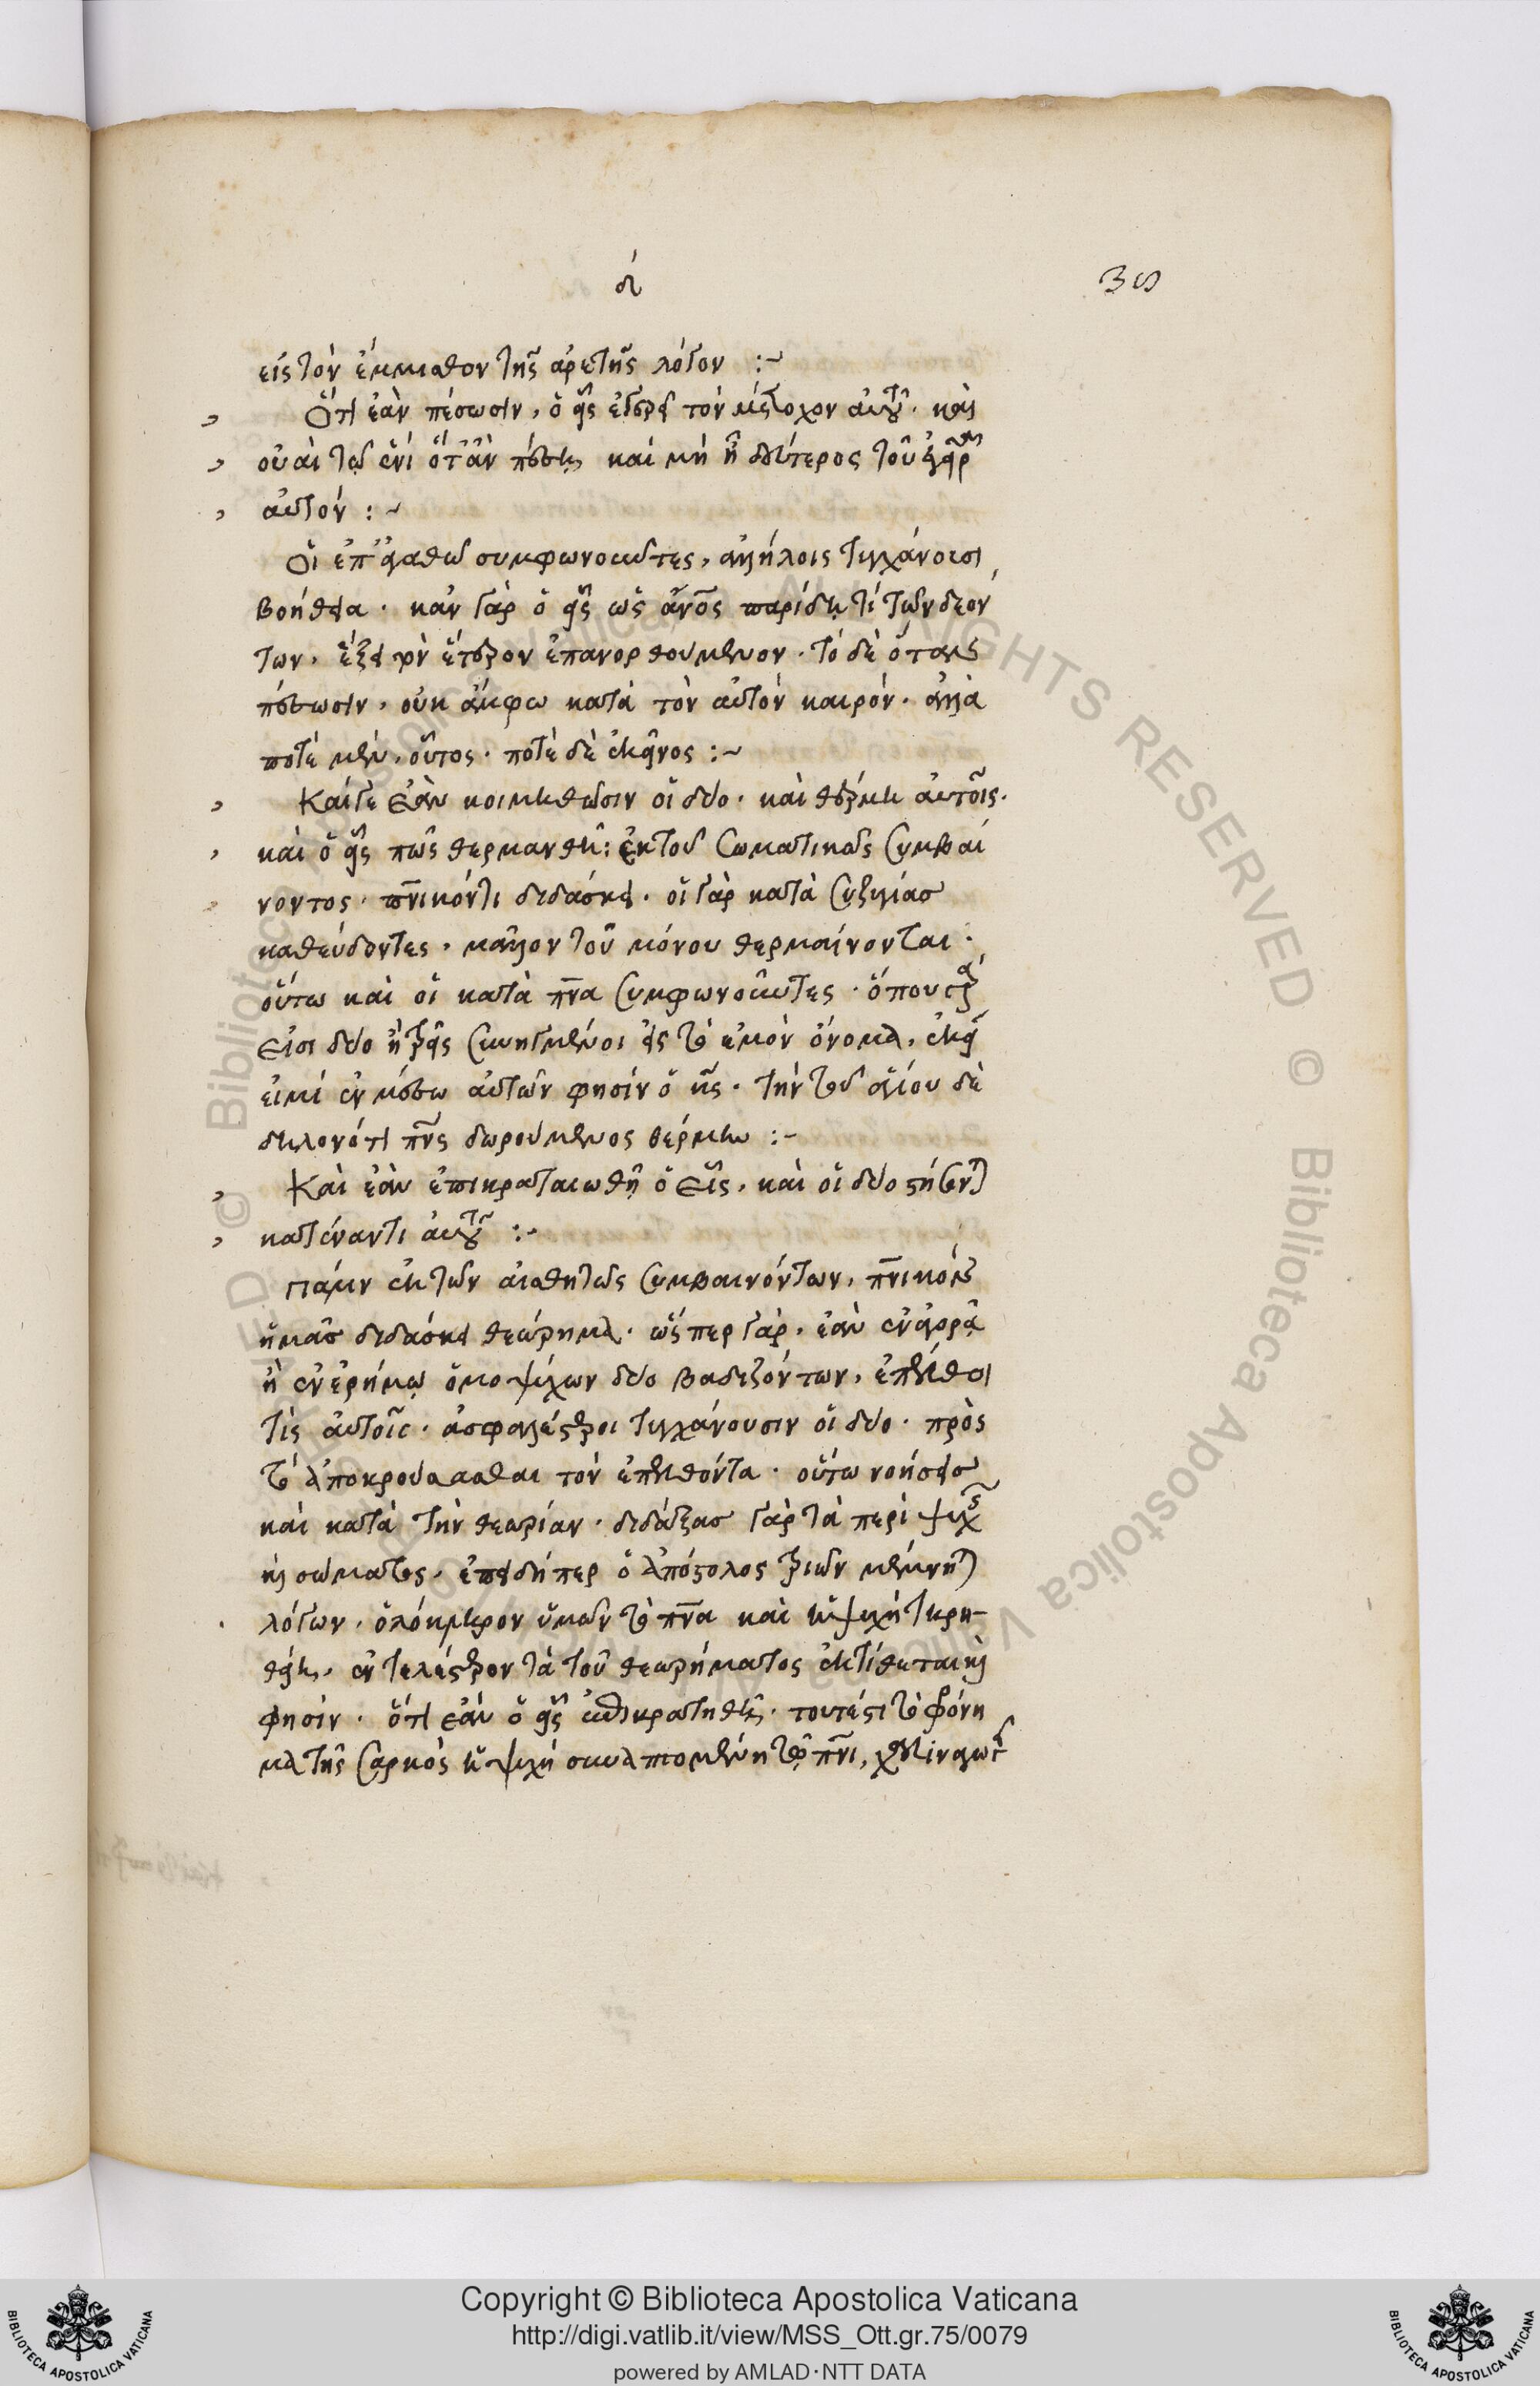 δ΄
36
εἰς τὸν ἔμμισθον τῆς ἀρετῆς λόγον :~
Ὅτι ἐὰν πέσωσιν, ὁ εἷς ἐγερεῖ τὸν μέτοχον αὐτοῦ. καὶ
οὐαὶ τῷ ἑνὶ ὅταν πέσῃ, καὶ μὴ ᾖ δεύτερος τοῦ ἐγεῖραι
αὐτόν :~
Οἱ ἐπ' ἀγαθῷ συμφωνοῦντες, ἀλλήλοις τυγχάνουσι
βοήθεια. κἂν γὰρ ὁ εἷς ὡς ἄνος παρίδῃ τί τῶν δεόν
των, ἕξει τὸν ἕτερον ἐπανορθούμενον. τὸ δὲ ὅταν
πέσωσιν, οὐκ ἄμφω κατὰ τὸν αὐτὸν καιρόν. ἀλλὰ
ποτὲ μὲν, οὗτος. ποτὲ δὲ ἐκεῖνος :~
Καίγε ἐὰν κοιμηθῶσιν οἱ δύο. καὶ θέρμη αὐτοῖς.
καὶ ὁ εἷς πῶς θερμανθῇ: ἐκ τοῦ σωματικῶς συμβαί
νοντος, πνικόν τι διδάσκει. οἱ γὰρ κατὰ συζυγίας
καθεύδοντες, μᾶλλον τοῦ μόνου θερμαίνονται.
οὕτω καὶ οἱ κατὰ πνα συμφωνοῦντες. ὅπου γάρ
εἰσι δύο ἢ τρεῖς συνηγμένοι εἰς τὸ ἐμὸν ὄνομα, ἐκεῖ
εἰμὶ ἐν μέσῳ αὐτῶν φησὶν ὁ κς. τὴν τοῦ ἁγίου δὲ
δηλονότι πνς δωρούμενος θέρμην :~
Καὶ ἐὰν ἐπικραταιωθῇ ὁ εἷς, καὶ οἱ δύο στήσονται
κατέναντι αὐτοῦ :~
Πάλιν ἐκ τῶν αἰσθητῶς συμβαινόντων, πνικὸν
ἡμᾶς διδάσκει θεώρημα. ὥσπερ γὰρ, ἐὰν ἐν ἀγορᾷ
ἢ ἐν ἐρήμῳ ὁμοψύχων δύο βαδιζόντων, ἐπέλθοι
τὶς αὐτοῖς. ἀσφαλέστεροι τυγχάνουσιν οἱ δύο. πρὸς
τὸ ἀποκρούσασθαι τὸν ἐπελθόντα. οὕτω νοήσεις
καὶ κατὰ τὴν θεωρίαν. διδάξας γὰρ τὰ περὶ ψυχῆς
καὶ σώματος, ἐπειδήπερ ὁ ἀπόστολος τριῶν μέμνηται
λόγων, ὁλόκληρον ὑμῶν τὸ πνα καὶ ἡ ψυχὴ τηρη-
θείη, ἐντελέστερον τὰ τοῦ θεωρήματος ἐκτίθεται καὶ
φησίν. ὅτι ἐὰν ὁ εἷς ἐπικρατηθῇ. τουτέστι τὸ φρόνη
μα τῆς σαρκὸς ἡ ψυχὴ συναπτομένη τῷ πνι,